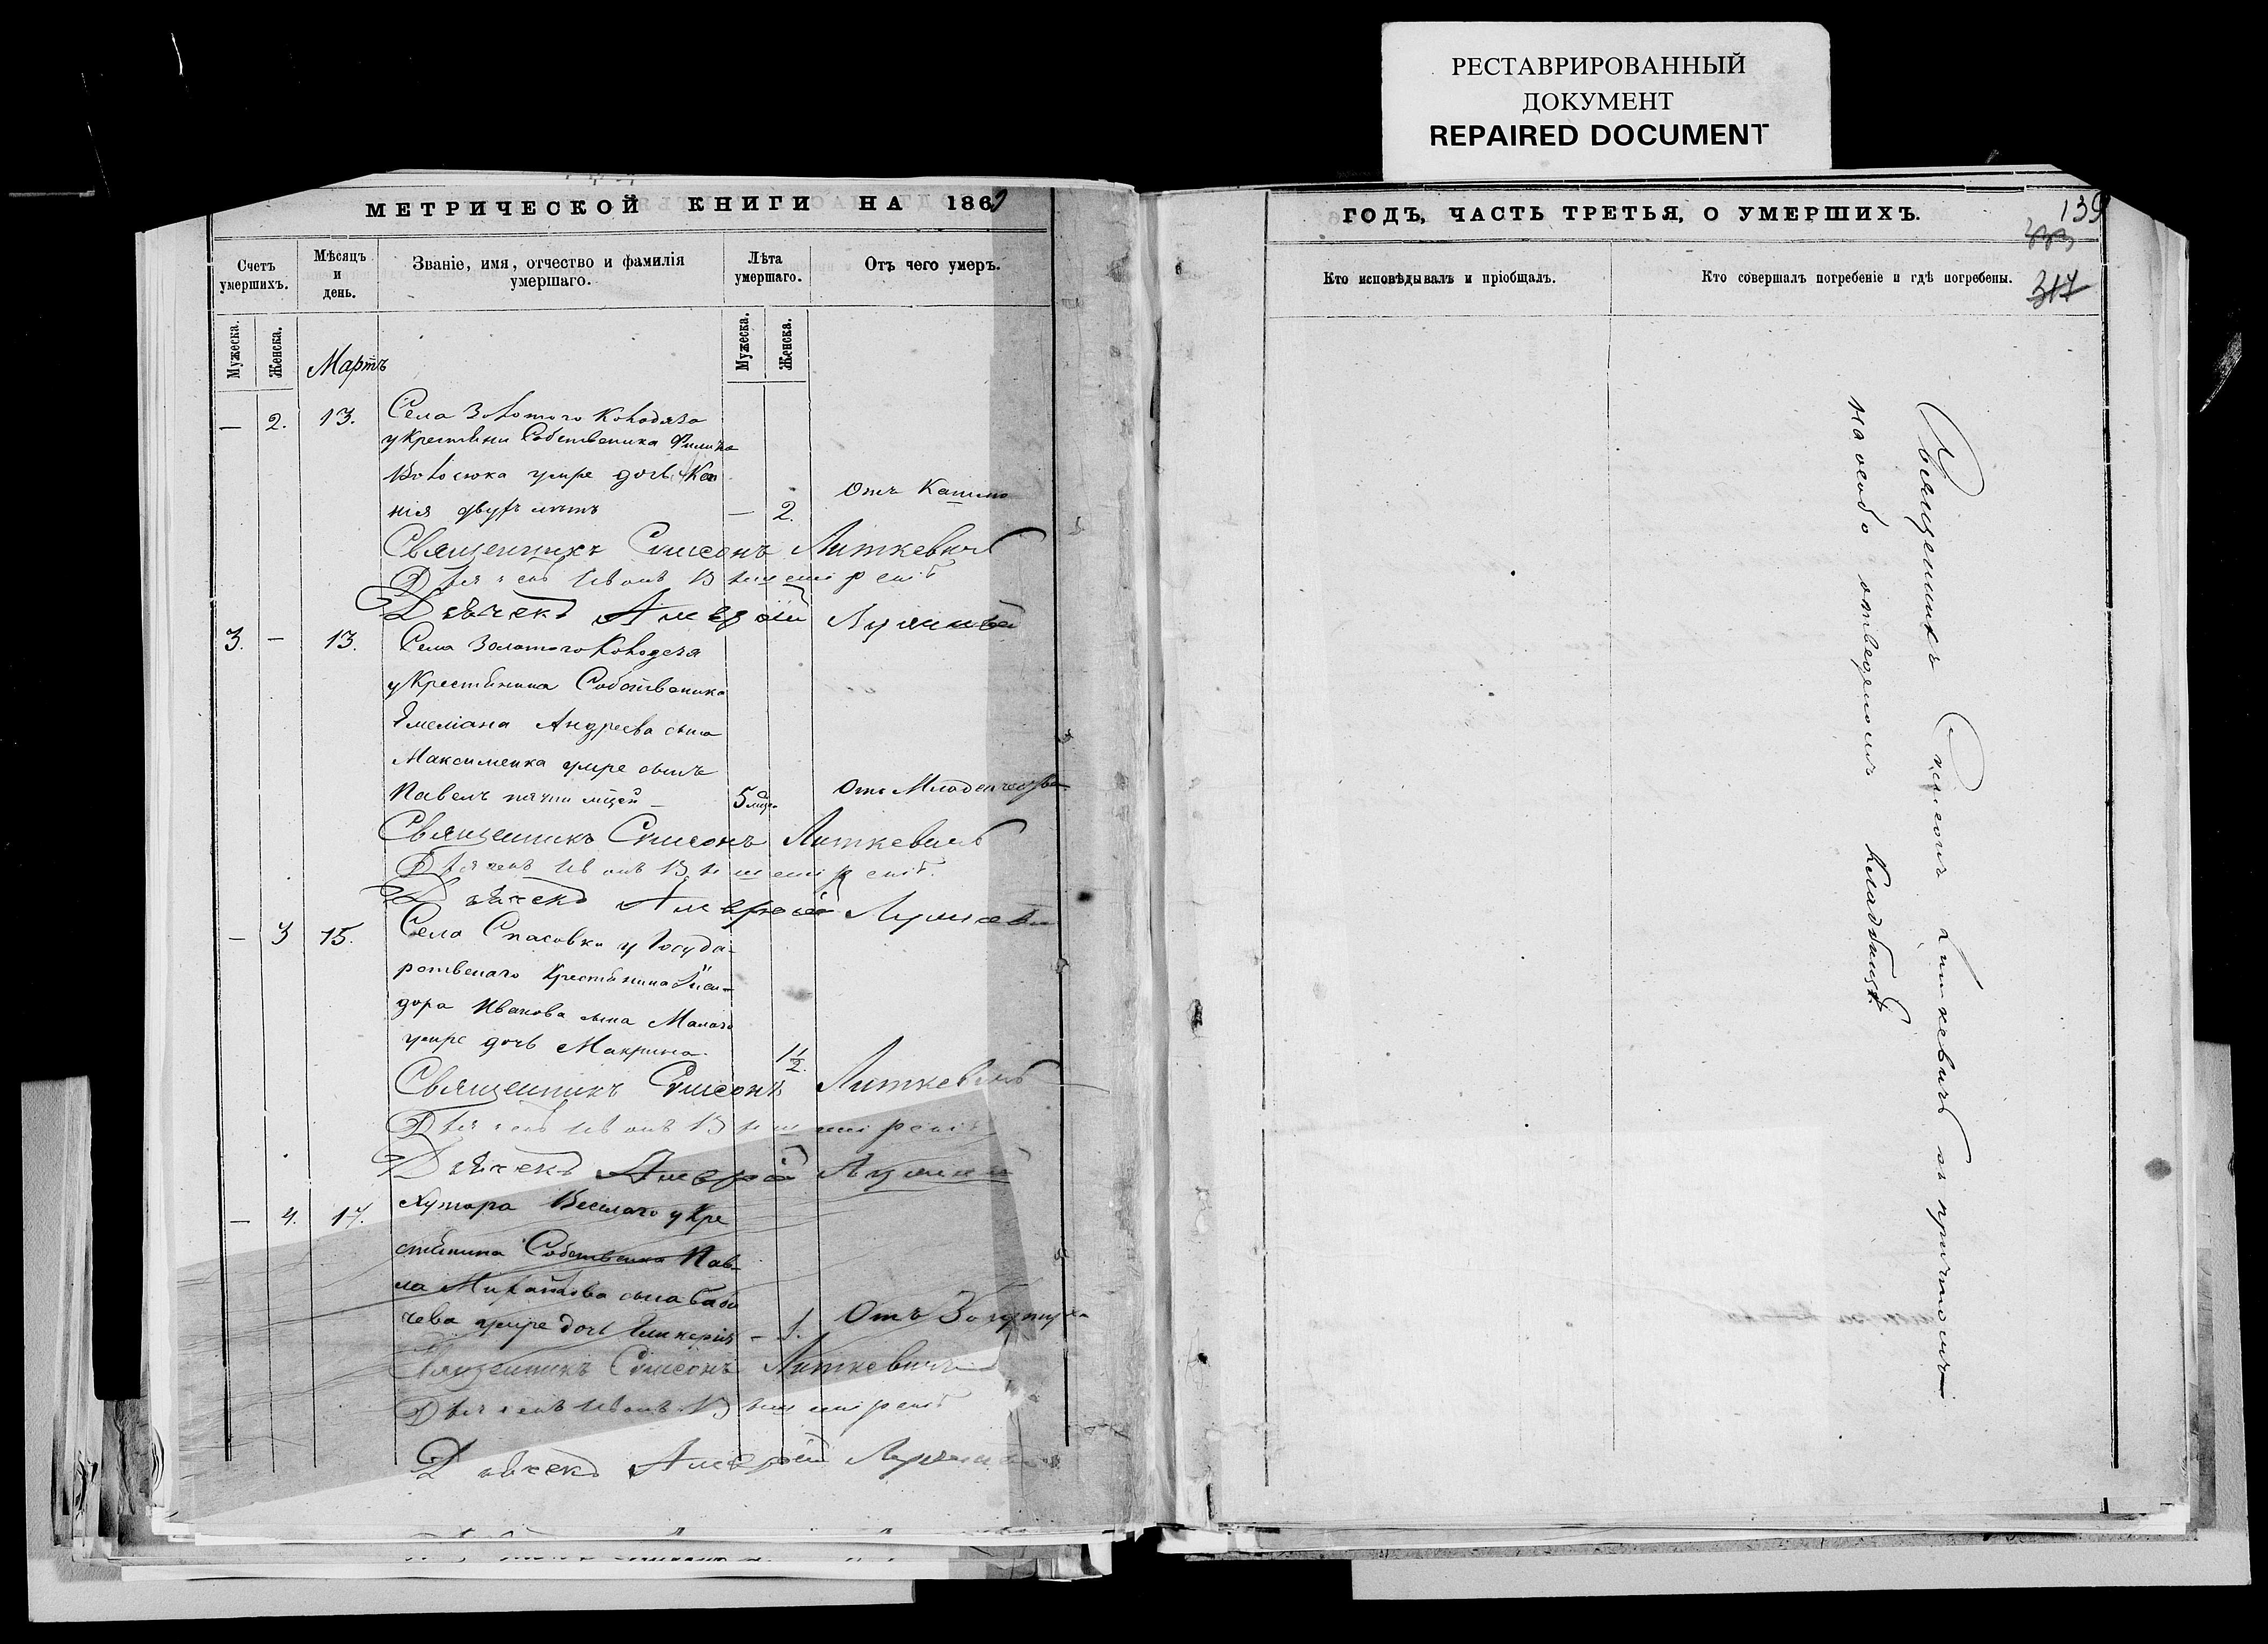 РЕСТАВРИРОВАННЫЙ
ДОКУМЕНТ
REPAIRED DOCUMENT
МЕТРИЧЕСКОЙ КНИГИ НА 1869
Счетъ умершихъ.
Мѣсяцъ и день.
Званіе, имя, отчество и фамилія умершаго.
Лѣта умершаго.
Отъ чего умеръ.
Мужеска.
Женска.
Мартъ
Мужеска.
Женска.
— 2. 13. Села Золотого Колодязя
у Крестьянина Собственика Филипа
умре дочь
нія двухъ лѣтъ — 2. Отъ Кашля
Священникъ Симеонъ Литкевичъ
Дьячекъ Иванъ
Дьячекъ
3. — 13. Села Золотого Колодезя
у Крестьянина Собственика
Емеліана Андреева сына
Максименка умре сынъ
Павелъ пяти мцей — 5 мце. Отъ Младенчества
Священникъ Симеонъ Литкевичъ
Дьячекъ Иванъ
Дьячекъ
— 3 15. Села Спасовки у Госуда-
рственаго Крестьянина Иси-
дора Иванова сына Малаго
умре дочь Макрина. 1½.
Священникъ Симеонъ Литкевичъ
Дьячекъ Иванъ
Дьячекъ
— 4. 17. Хутора Веселаго у Кре
стьянина Собственика Пав-
ла сына Баби
чева умре дочь Гликерія — 1. Отъ Золотухи
Священникъ Симеонъ Литкевичъ
Дьячекъ Иванъ
Дьячекъ
ГОДЪ, ЧАСТЬ ТРЕТЬЯ, О УМЕРШИХЪ.
139
317
Кто исповѣдывалъ и пріобщалъ.
Кто совершалъ погребеніе и гдѣ погребены.
Священникъ Симеонъ Литкевичъ съ причтомъ
на особо отведеномъ кладбищѣ.